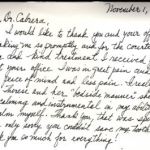 November 1,
Dr. Cabrera,
I would like to thank you and your of
king me so promptly and for the courte
and kind treatment I received f
t your office. I was in great pain and
peace of mind and less pain. Grea
Theresa and her "bedside manner" wh
calming and instrumental in my abili
alm myself. Thank you, that was spe
only sorry you couldn't save my tooth
k you so much for everything!